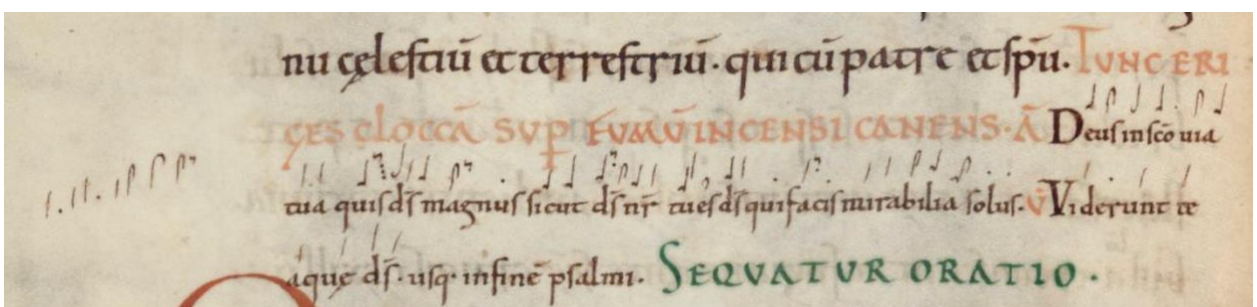 nu cęlestiū et terrestriū. qui cū patre et spū. TUNC ERI
GES CLOCCĀ SUP FUMŪ INCENSI CANENS. Ā Deus in scō uia
tua quis ds̄ magnus sicut ds̄ nr̄ tu es ds̄ qui facis mirabilia solus. V̄ Viderunt te
aquę ds̄. usq. in finē psalmi. SEQVATVR ORATIO.